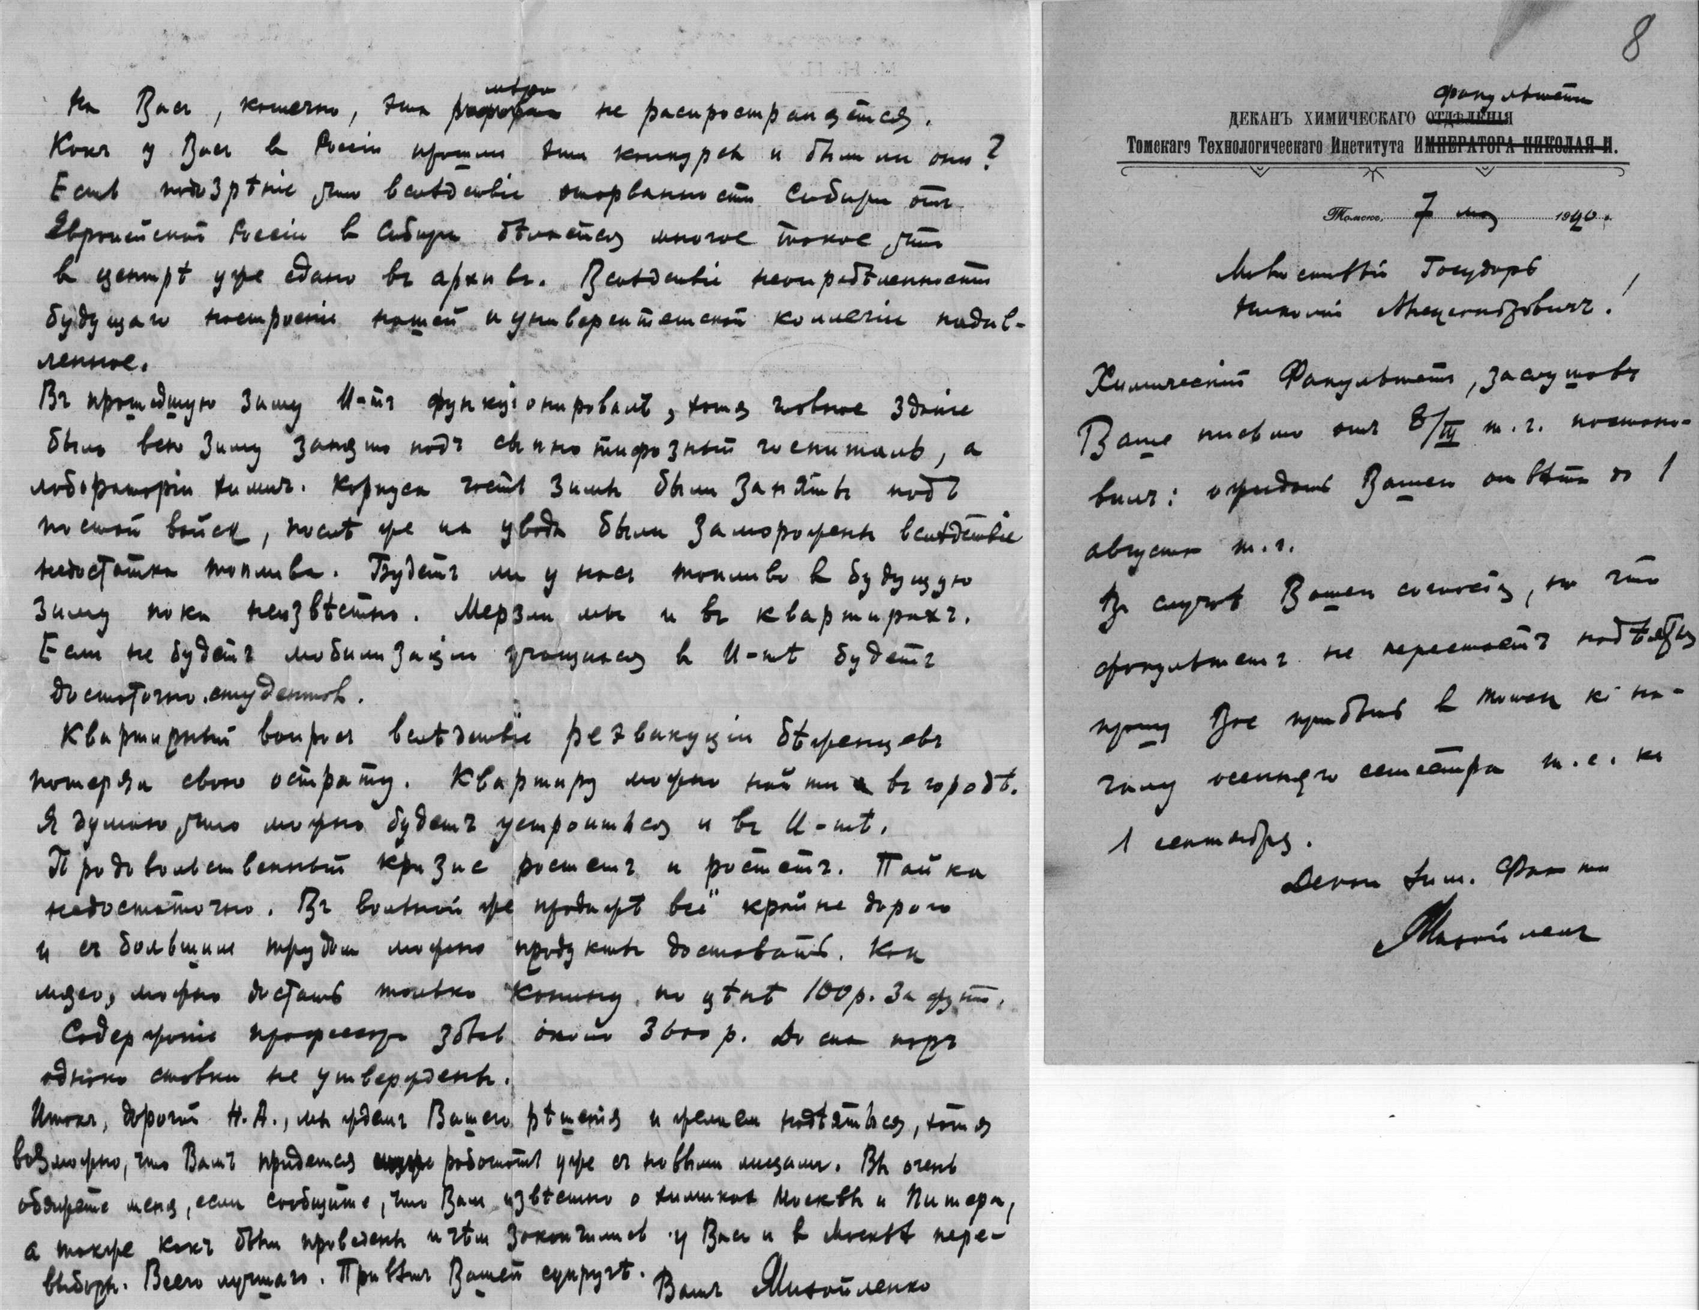 мѣра
На Васъ, конечно, эта реформа не распространяется.
Какъ у Васъ в Россіи прошли эти конкурсы и были ли они?
Есть подозрѣніе что вслѣдствіе оторванности Сибири отъ
Европейской Россіи в Сибири дѣлается многое такое что
в центрѣ уже сдано въ архивъ. Вслѣдствіе неопредѣленности
будущаго настроеніе нашей и университетской коллегіи подав-
ленное.
Въ прошедшую зиму И-тъ функціонировалъ, хотя главное зданіе
было всю зиму занято подъ сыпнотифозный госпиталь, а
лабораторіи химич. корпуса часть зимы были заняты подъ
постой войск, послѣ же их увода были заморожены вслѣдствіе
недостатка топлива. Будетъ ли у насъ топливо в будущую
зиму пока неизвѣстно. Мерзли мы и въ квартирахъ.
Если не будетъ мобилизаціи учащихся в И-тѣ будетъ
достаточно студентов.
Квартирный вопросъ вслѣдствіе реэвакуціи бѣженцевъ
потерял свою остроту. Квартиру можно найти и въ городѣ.
Я думаю что можно будетъ устроиться и въ И-тѣ.
Продовольственный кризис ростетъ и ростетъ. Пайка
недостаточно. Въ вольной же продажѣ всё крайне дорого
и съ большим трудом можно продукты доставать. Как
мясо, можно достать только конину по цѣнѣ 100 р. за фунт.
Содержаніе профессора здѣсь около 3600 р. До сих поръ
однако ставки не утверждены.
Итакъ, дорогой Н.А., мы ждемъ Вашего рѣшенія и желаем надѣяться, хотя
возможно, что Вамъ придется работать уже съ новыми лицами. Вы очень
обяжете меня, если сообщите, что Вам извѣстно о химиках Москвы и Питера,
а также какъ были проведены и чѣм закончились у Васъ и в Москвѣ пере-
выборы. Всего лучшаго. Привѣтъ Вашей супругѣ. Вашъ Михайленко
8
факультета
ДЕКАНЪ ХИМИЧЕСКАГО ОТДѢЛЕНІЯ
Томскаго Технологическаго Института ИМПЕРАТОРА НИКОЛАЯ II.
Томскъ, 7 мая 1920 г.
Милостивый Государь
Николай Александровичъ!
Химическій Факультетъ, заслушавъ
Ваше письмо отъ 8/III т.г. постано-
вилъ: ожидать Вашего отвѣта до 1
августа т.г.
Въ случаѣ Вашего согласія, на что
факультетъ не перестаетъ надѣяться
прошу Вас прибыть в Томск къ на-
чалу осенняго семестра т.е. къ
1 сентября.
Декан Хим. Фак-та
Михайленко